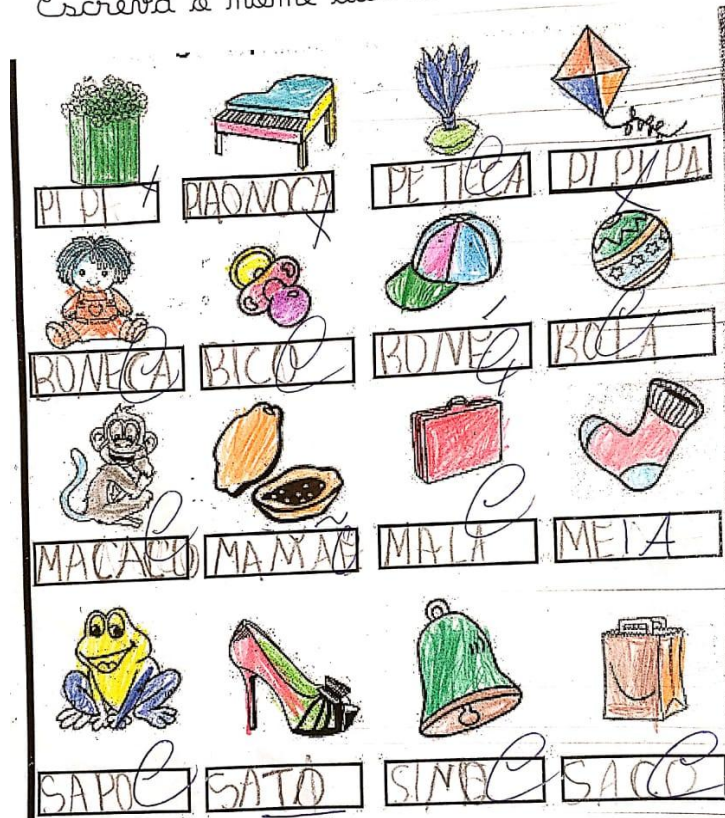 Escreva o nome
PI PI
PIAONOCA
PE TECA
PI PI PA
BONECA
BICO
BONÉ
BOLA
MACACO
MAMÃO
MALA
MEIA
SAPO
SATO
SINO
SACO